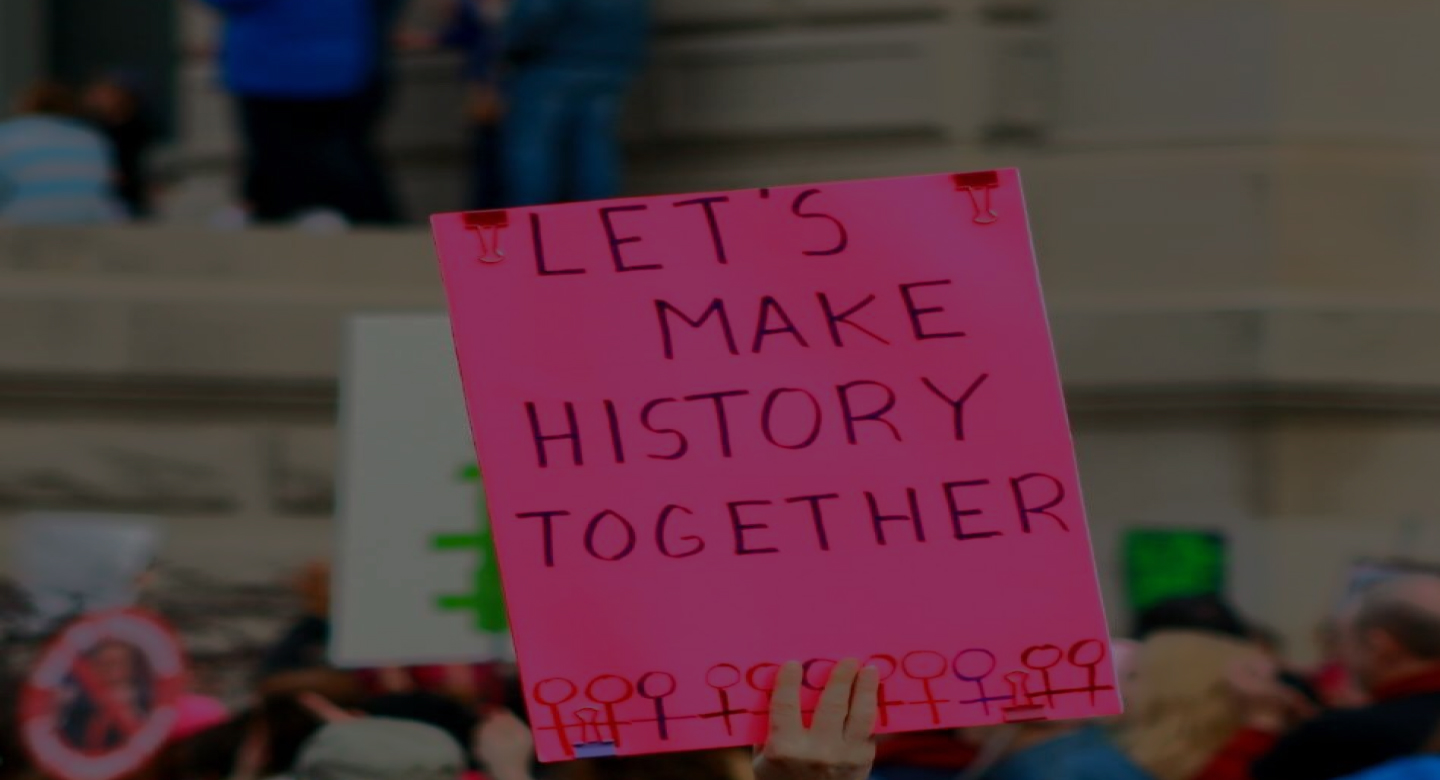 LET'S
MAKE
HISTORY
TOGETHER